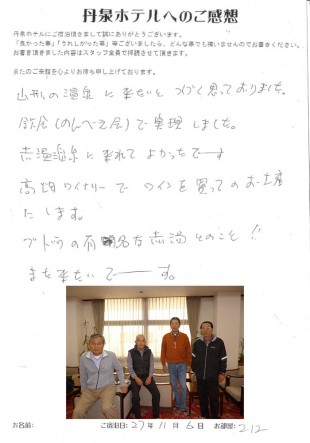 丹泉ホテルへのご感想
丹泉ホテルにご宿泊頂きまして誠にありがとうございます。
「良かった事」「うれしかった事」等ございましたら、どんな事でも構いませんのでお書きください。
お書き頂きました内容はスタッフ全員で拝読させて頂きます。
またのご来館を心よりお待ち申し上げております。
山形の温泉に来たいとつづく思っておりました。
飲会(のんべえ会)で実現しました。
赤湯温泉に来れてよかったでーす
高畑ワイナリーでワインを買ってのお土産
たします。
ブドウの有名な赤湯とのこと!!
また来たいでーーす。
お名前: ご宿泊日: 27年 11月 6日 お部屋: 212